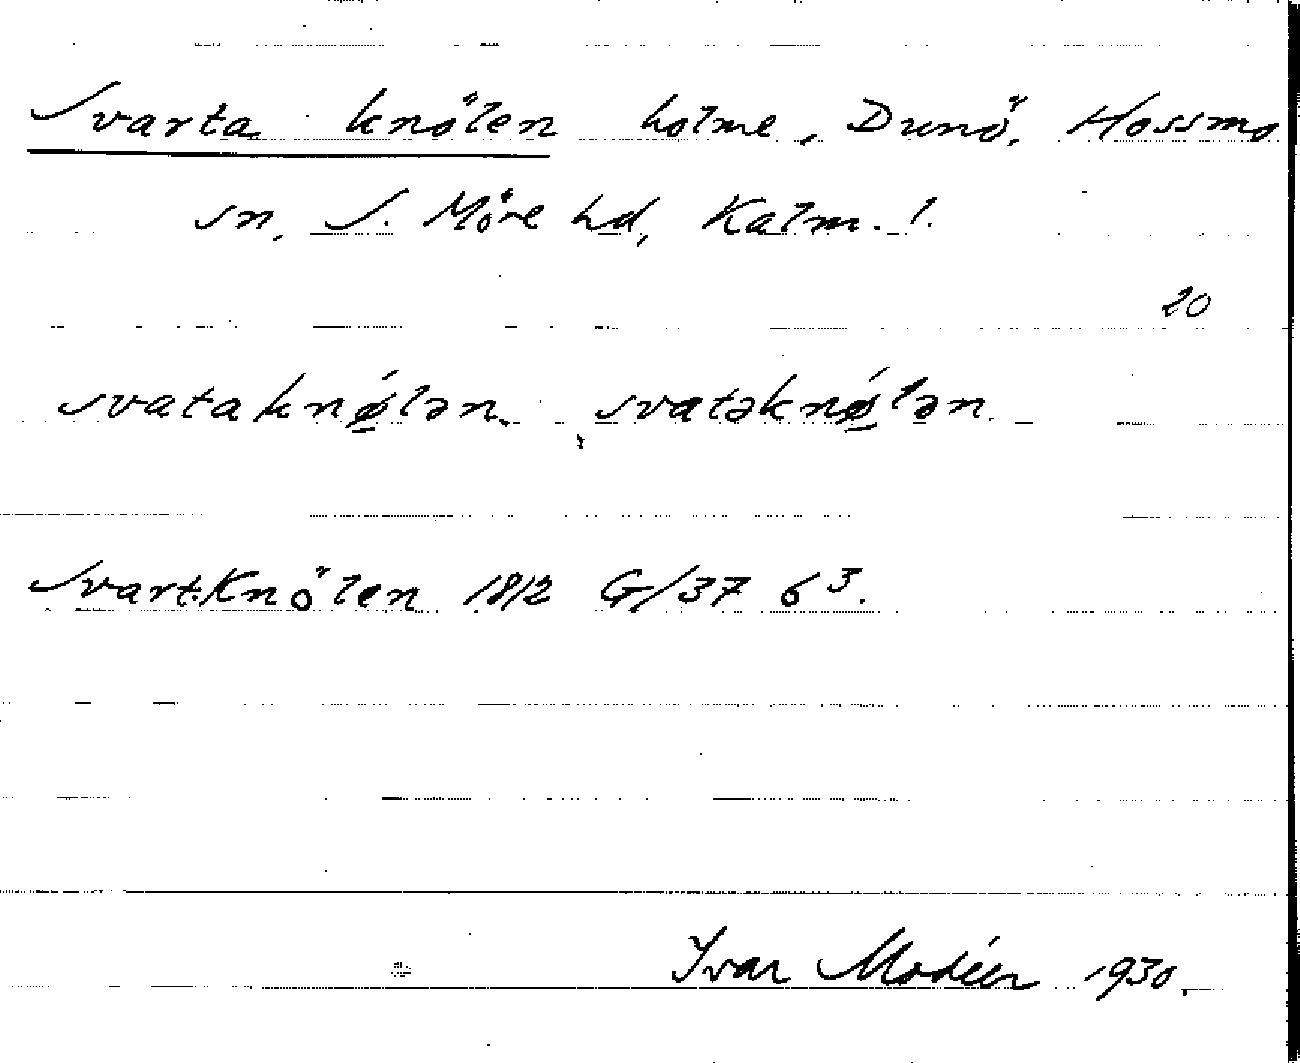 Svarta knölen holme, Dunö, Hossmo
sn, S. Möre hd, Kalm. l.
20
svataknǿ̱lən, svatəknǿ̱lən.
SvartKnölen 1812 G/37 6³.
Ivar Modéer 1930.